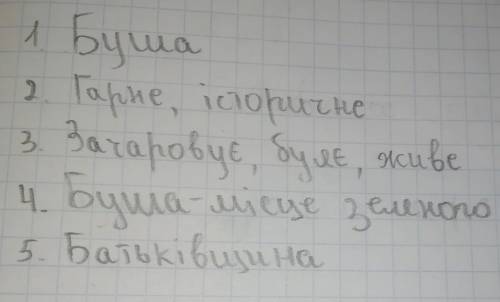 1. Буша
2. Гарне, історичне
3. Зачаровує, буяє, живе
4. Буша-місце земного
5. Батьківщина